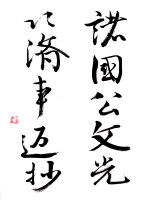 諸國公文光
以済事迈抄